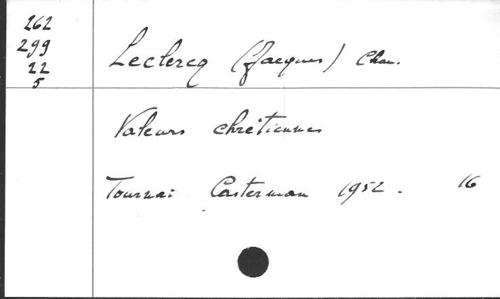 262
299
22
5
Leclercq (Jacques) Chan.
Valeurs chrétiennes
Tournai Casterman 1952. 16